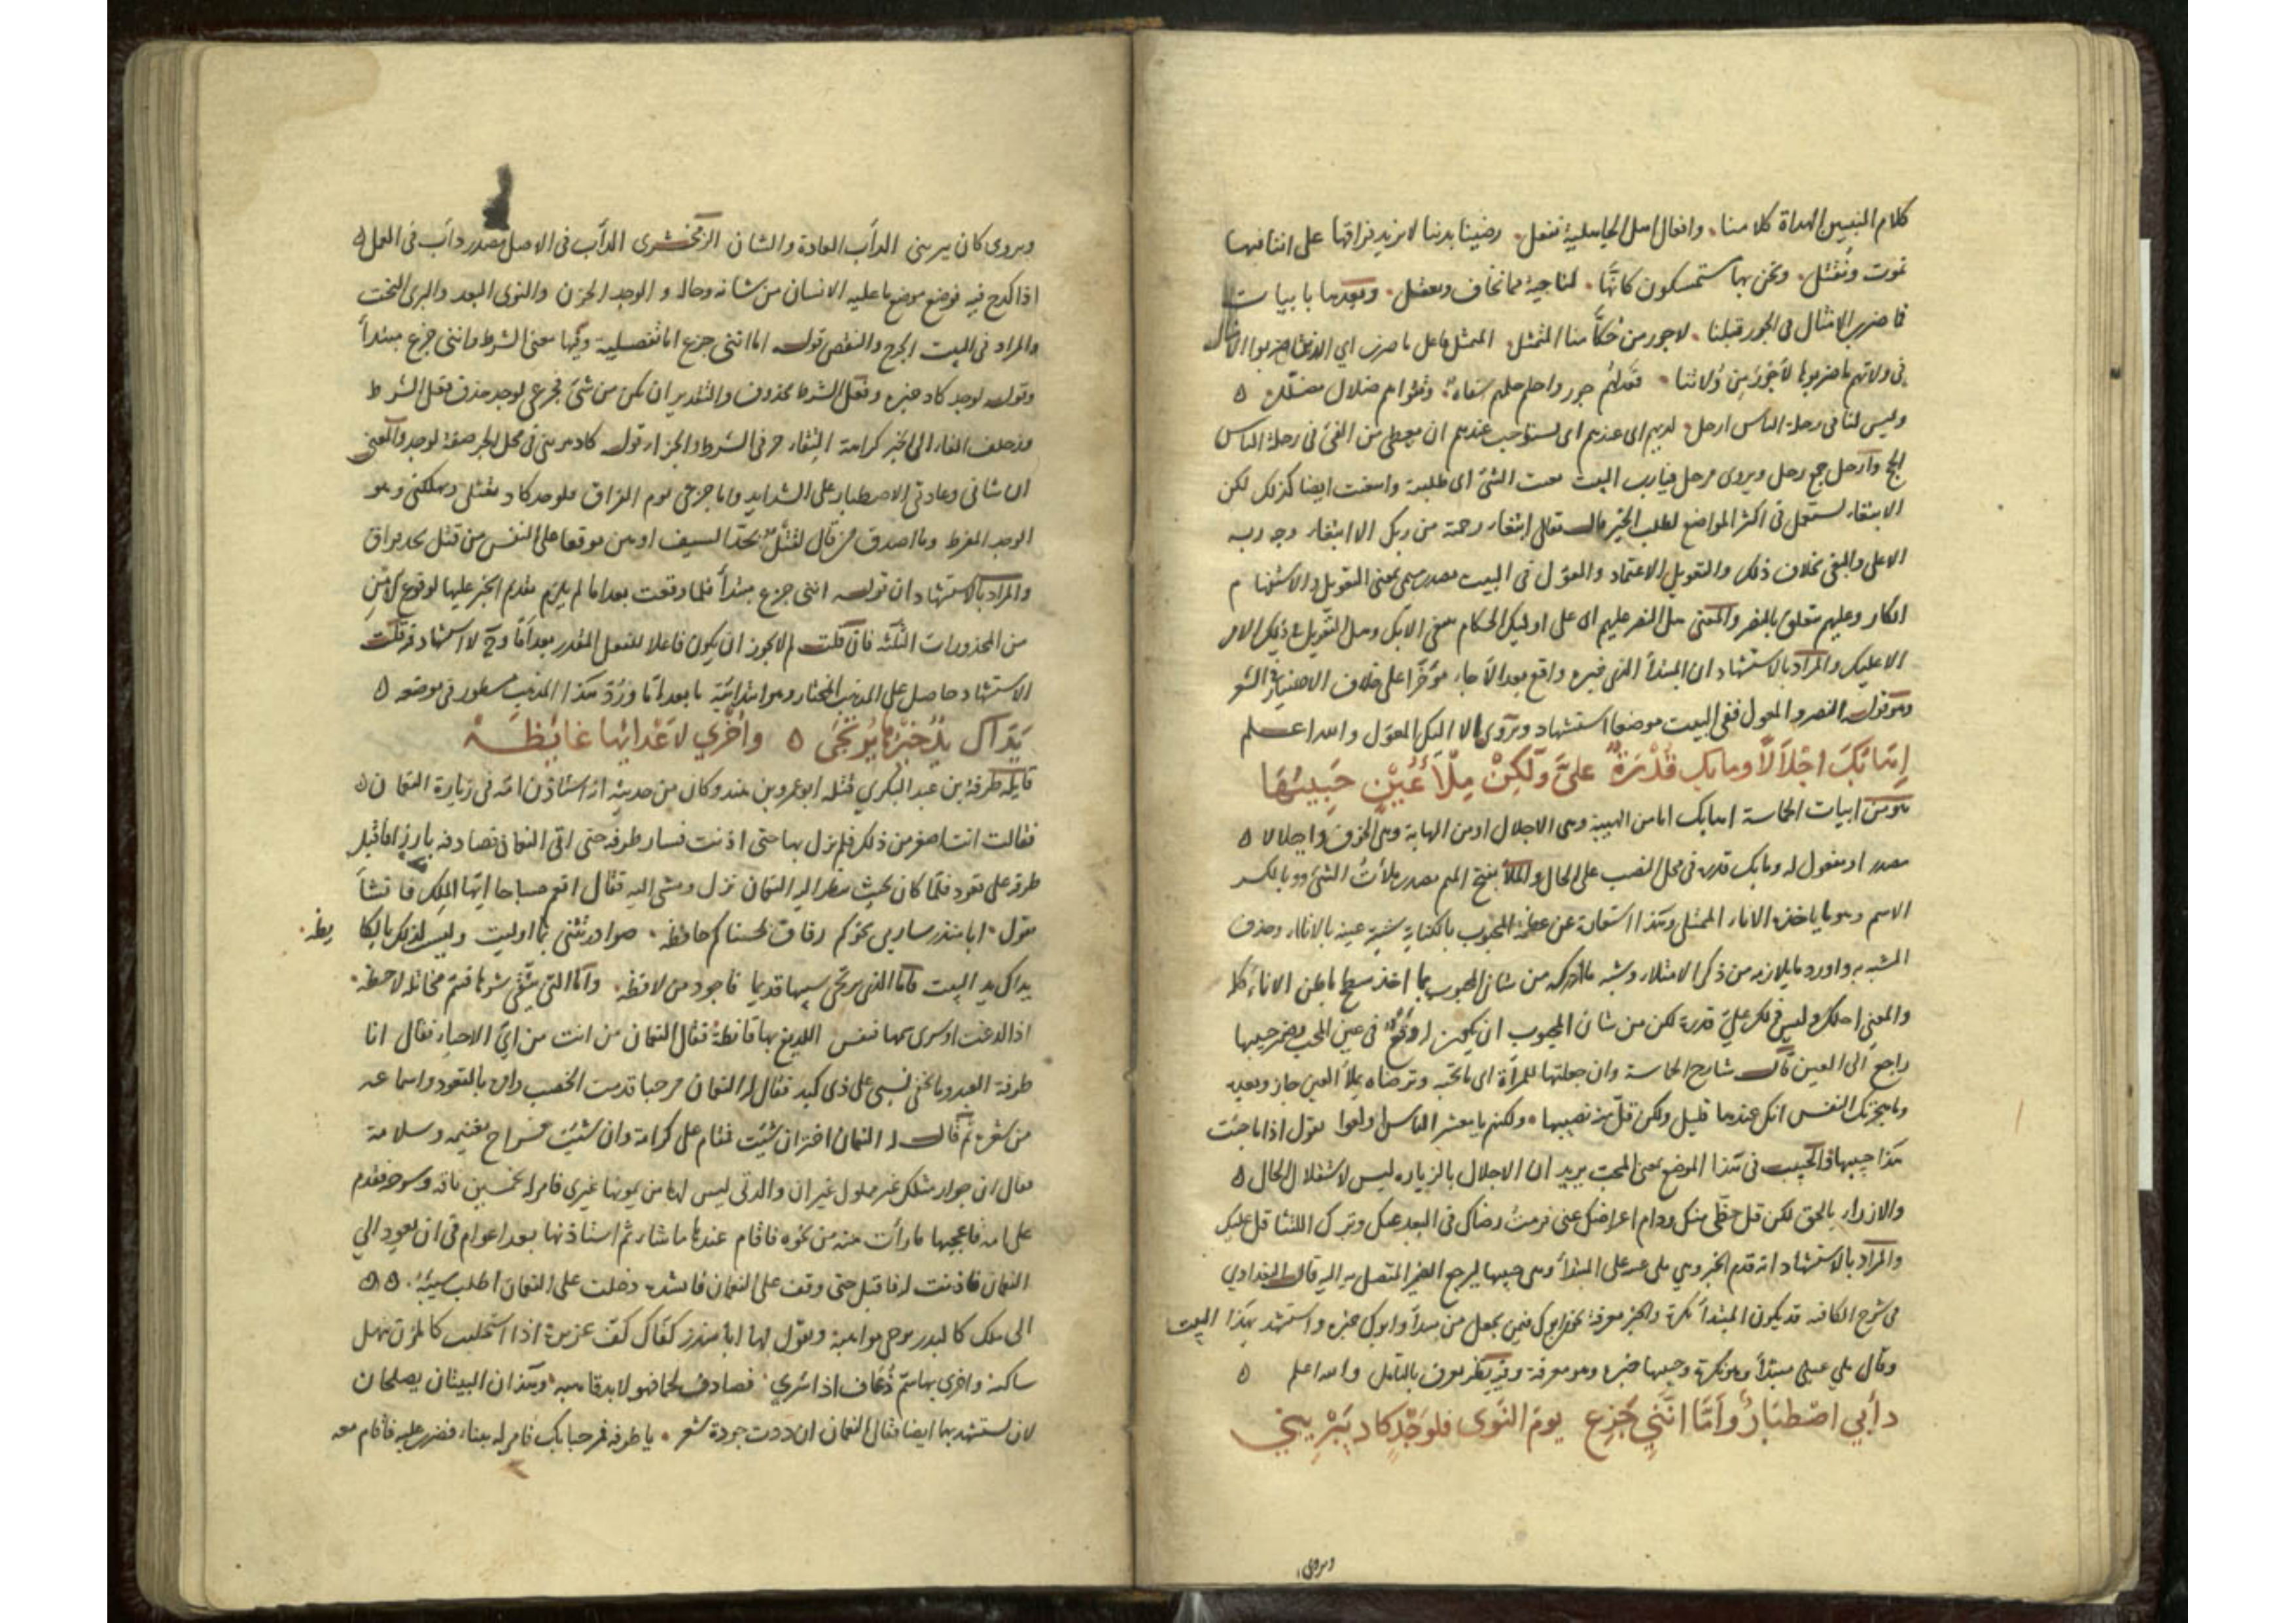 كلام النبيين الهداة كلامنا وافعال اهل الجاهلية نفعل رضينا بدنيا لا نريد فراقها على اننا فيها
نموت ونقتل ونحن بها مستمسكون كانها لنا جنة مما نخاف ونعقل وبعدها بابيات
فما ضرب الامثال فى الجور قبلنا لاجور من حكامنا المتمثل المتمثل فاعل ما ضرب اي الذين ضربوا الامثال
فى ولاتهم ما ضربوها لاجور من ولاتنا جور واحلم حلمهم سفاه ضلال مضلل
وليس لنا فى رحلة الناس ارحل لديهم اى عندهم اى عندهم ان يعطى من الفئ فى رحلة الناس
الحج وارحل جمع رحل ويروى مرحل فيارب البيت بغيت الشئ اى طلبته وابتغيت ايضا كذلك لكن
الابتغاء يستعمل فى اكثر المواضع لطلب الخير قال تعالى ابتغاء رحمة من ربك الا ابتغاء وجه ربه
الاعلى والبغى بخلاف ذلك والتعويل الاعتماد والمعول فى البيت مصدر ميمى بمعنى التعويل والاستفهام
انكار وعليهم متعلق بالنصر والمعنى هل النصر عليهم اى على اوليك الحكام الا بك وهل التعويل فى ذلك الامر
الا عليك والمراد بالاستشهاد ان المبتدأ الذى خبره واقع بعد الا جاء مؤخرا على خلاف الاختيار فى الشعر
وهو قوله النصر والمعول ففى البيت موضعا استشهاد ويروى الا اليك المعول والله اعلم
اهابك اجلالا وما بك قدرة على ولكن ملأ عين حبيبها
هو من ابيات الحماسة اهابك اما من الهيبة وهى الاجلال او من المهابة وهى الخوف واجلالا
مصدر او مفعول له وما بك قدرة فى محل النصب على الحال والملأ بفتح الميم مصدر ملأت الشئ وبالكسر
الاسم وهو ما ياخذه الاناء الممتلى وهذا استعارة عن عظمة المحبوب بالكناية شبه عينه بالاناء وحذف
المشبه به واورد ما يلازمه من ذكر الامتلاء وشبه ما ادركه من شان المحبوب بما اخذ سطح باطن الاناء كله
والمعنى اجلك وليس ذلك على قدرة لكن من شان المحبوب ان يكون له وقع فى عين المحب فضمير حبيبها
راجع الى العين قال شارح الحماسة وان جعلتها للمرأة اى ما تحبه وترضاه يملأ العين جاز وبعده
وما هجرتك النفس انك عندها قليل ولكن قل منك نصيبها ولكنهم يا معشر الناس اولعوا بقول اذا ما جئت
هذا حبيبها فالحبيب فى هذا الموضع بمعنى المحب يريد ان الاجلال بالزيارة ليس لاستقلال الحال
والازدراء بالحق لكن قل حظى منك ودام اعراضك عنى فرمت رضاك فى البعد عنك وترك اللقا ثقل عليك
والمراد بالاستشهاد انه قدم الخبر وهى ملى عين على المبتدأ وهى حبيبها ليرجع الضمير المتصل به اليه قال البغدادي
فى شرح الكافية قد يكون المبتدأ نكرة والخبر معرفة نحو ابوك فيمن يجعل من مبتدأ وابوك خبره واستشهد بهذا البيت
وقال ملى عين مبتدأ وهو نكرة وحبيبها خبره وهو معرفة وفيه نظر يعرف بالتامل والله اعلم
دأبي اصطبار وأما انني جزع يوم النوى فلوجد كاد يبريني
ويروى
ويروى كان يبرينى الدأب العادة والشان الزمخشرى الدأب فى الاصل مصدر دأب فى العمل
اذا كدح فيه فوضع موضع ما عليه الانسان من شانه وحاله والوجد الحزن والنوى البعد والبرى النحت
والمراد فى البيت الجرح والنقص قوله اما اننى جزع اما تفصيلية وفيها معنى الشرط واننى جزع مبتدأ
وقوله لوجد كاد خبره وفعل الشرط محذوف والتقدير ان يكن من شئ فجزعى لوجد حذف فعل الشرط
فزحلفت الفاء الى الخبر كراهة التقاء حرفى الشرط والجزاء قوله كاد يبرينى فى محل الجر صفة لوجد والمعنى
ان شانى وعادتى الاصطبار على الشدايد واما جزعى يوم الفراق فلوجد كاد يقتلنى ويهلكنى وهو
الوجد المفرط وما اصدق من قال لقتل بحد السيف اهون موقعا على النفس من قتل بحد فراق
والمراد بالاستشهاد ان قوله اننى جزع مبتدأ فلما وقعت بعد اما لم يلزم تقديم الخبر عليها لوقوع الامن
من المحذورات الثلثة فان قلت لم لا يجوز ان يكون فاعلا للفعل المقدر بعد اما وح لا استشهاد قلت
الاستشهاد حاصل على المذهب المختار وهو ابتدائية ما بعد اما ورد هذا المذهب مسطور فى موضعه
يداك يد خيرها يرتجى واخري لاعدائها غائظة
قايله طرفة بن عبد البكري قتله ابو عمرو بن هند وكان من حديثه انه استاذن امه فى زيارة النعمان
فقالت انت اصغر من ذلك فلم يزل بها حتى اذنت فسار طرفة حتى اتى النعمان فصادفه بارزا فاقبل
طرفة على قعود فلما كان بحيث ينظر اليه النعمان نزل ومشى اليه فقال انعم صباحا ايها الملك فانشأ
يقول ابا منذر سار بى نحوكم رفاق لحسناكم حافظه صوادر تثنى بما اوليت وليست لذلك بالباكا
يظه
يداك يد البيت فاما التى يرتجى سيبها قديما فاجود من لافظه واما التى يتقى شرها فسم مخاتلة لاحظه
اذا لدغت وسرى سمها فنفس اللديغ بها فائظة فقال النعمان من انت من اي الاحياء فقال انا
طرفة العبد وما يخفى نسبى على ذى كبد فقال له النعمان مرحبا قدمت الخصب وامر بالقعود واسماعه
من شعره ثم قال له النعمان اختر ان شئت فمقام على كرامة وان شئت فسراح بغنيمة وسلامة
فقال ان جوار مثلك غير مملول غير ان والدتى ليس لها من يمونها غيرى فامر له بخمسين ناقة وسرحه فقدم
على امه فاعجبها ما رأت منه من نحوه فاقام عندها ما شاء ثم استاذنها بعد اعوام فى ان يعود الي
النعمان فاذنت له فاقبل حتى وقف على النعمان فانشده دخلت على النعمان اطلب سيبه
الى ملك كالبدر يرجى مواهبه ويقول لها ابا منذر كفاك كف عزيزة اذا استحلبت كالمزن تنهل
ساكبه واخرى بها سم ذعاف اذا سري فصادف لحما فهو لا بد قاضبه وهذان البيتان يصلحان
لان يستشهد بهما ايضا فقال النعمان ان ددت جودة شعر يا طرفة فمرحبا بك فامر له ببناء فضرب عليه فاقام معه